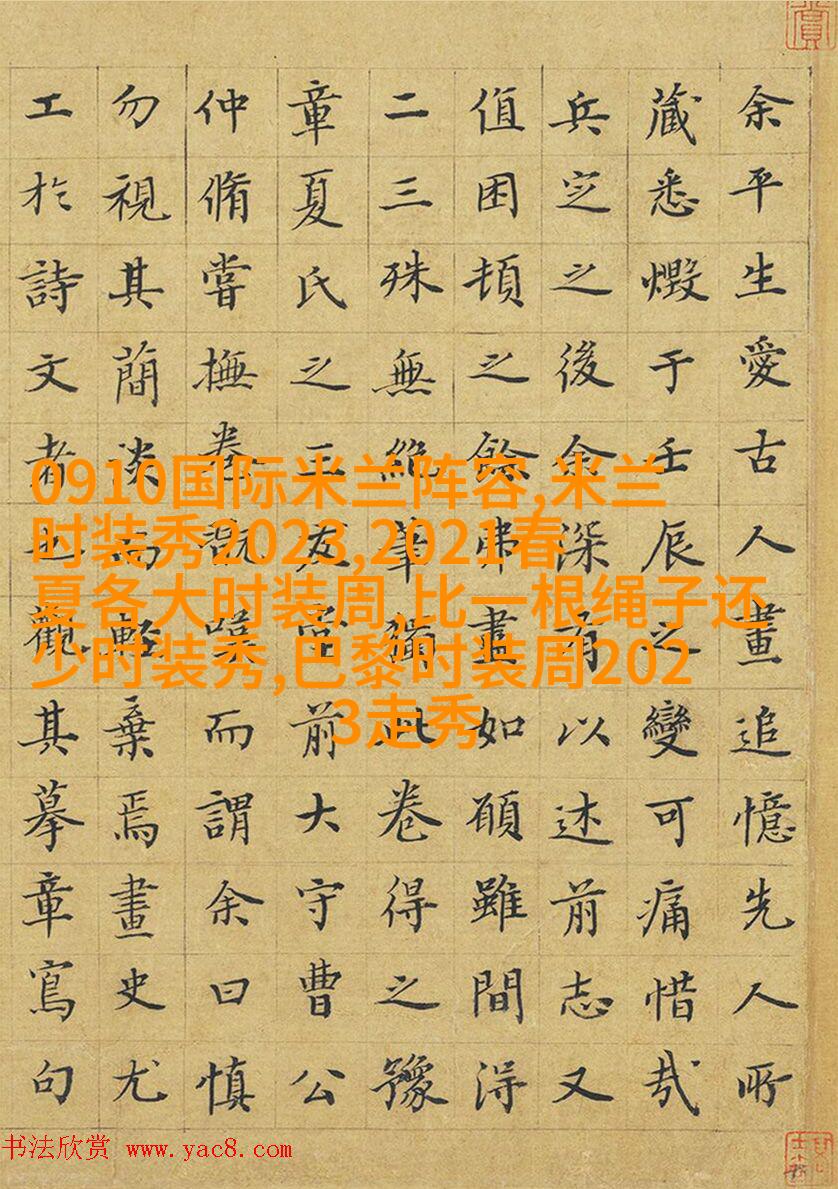 余平生愛古人畫追憶先人所
藏悉燬于壬辰之變可痛惜哉
兵㝎之後深有以述前志又
值困頓之餘弗畫如願雖間得
二三殊無絶筆獨此卷得之豫
章夏氏之王友堂前大守曹公
仲脩嘗撫卷嘆而謂余曰慎
勿視其簡淡而輕棄焉畫史尤
工於詩文者必觀其摹章寫句
0910国际米兰阵容,米兰
时装秀2023,2021春
夏各大时装周,比一根绳子还
少时装秀,巴黎时装周202
3走秀
书法欣赏 www.yac8.com